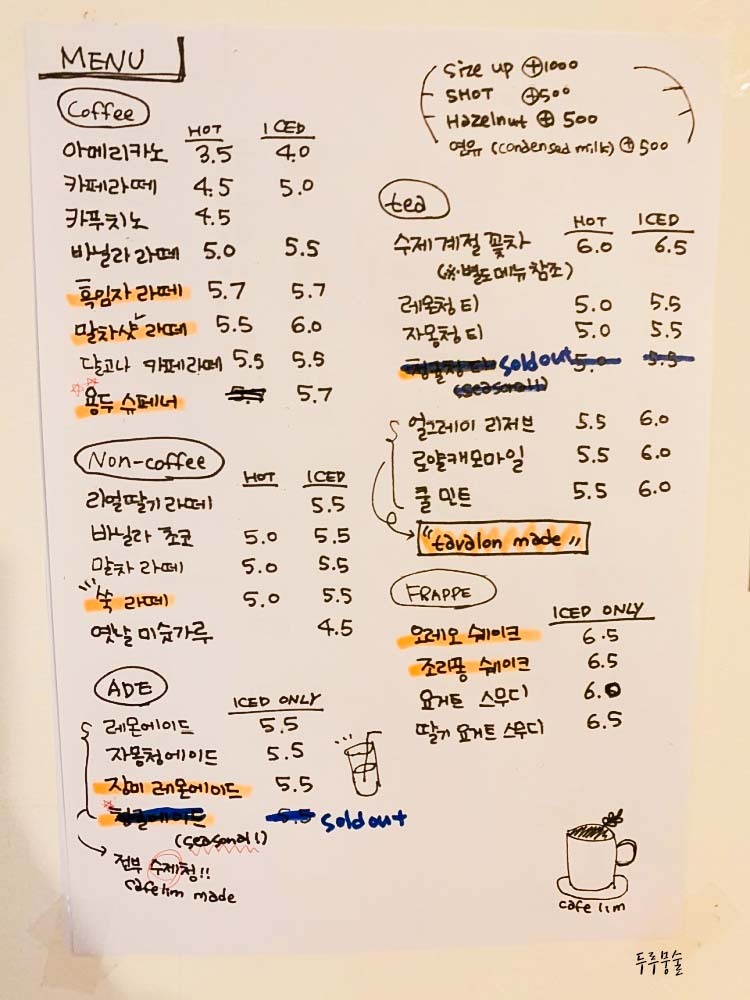 MENU
Coffee
HOT ICED
아메리카노 3.5 4.0
카페라떼 4.5 5.0
카푸치노 4.5
바닐라 라떼 5.0 5.5
흑임자 라떼 5.7 5.7
말차샷 라떼 5.5 6.0
달고나 카페라떼 5.5 5.5
용두 슈페너 5.7
Non-coffee
HOT ICED
리얼딸기 라떼 5.5
바닐라 초코 5.0 5.5
말차 라떼 5.0 5.5
쑥 라떼 5.0 5.5
옛날 미숫가루 4.5
ADE
ICED ONLY
레몬에이드 5.5
자몽청에이드 5.5
장미 레몬에이드 5.5
5.5 sold out
(seasonal!)
전부 수제청!!
cafe lim made
size up ⊕1000
SHOT ⊕500
Hazelnut ⊕ 500
연유 (condensed milk) ⊕ 500
tea
HOT ICED
수제 계절 꽃차 6.0 6.5
(※별도메뉴 참조)
레몬청 티 5.0 5.5
자몽청 티 5.0 5.5
sold out 5.0 5.5
(seasonal!)
얼그레이 리저브 5.5 6.0
로얄캐모마일 5.5 6.0
쿨 민트 5.5 6.0
"tavalon made"
FRAPPE
ICED ONLY
오레오 쉐이크 6.5
조리퐁 쉐이크 6.5
요거트 스무디 6.0
딸기 요거트 스무디 6.5
cafe lim
두루뭉술